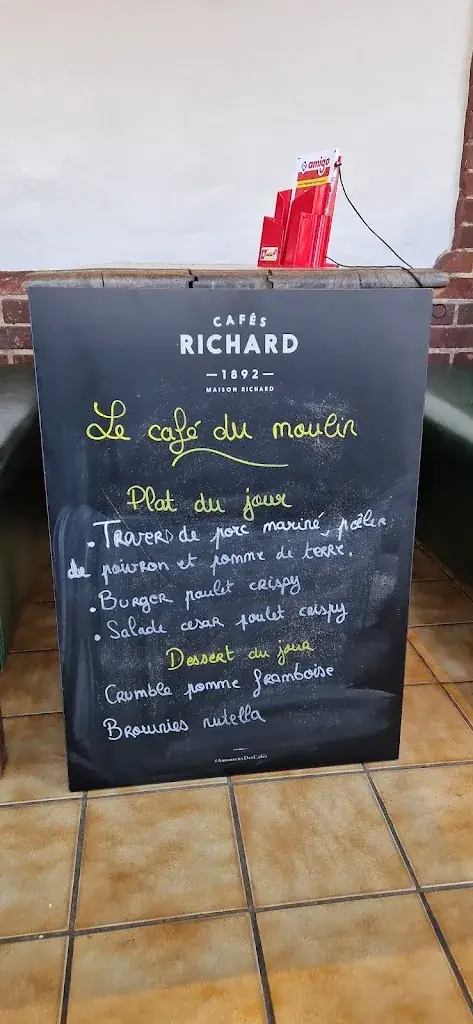 amigo
CAFÉS
RICHARD
—1892—
MAISON RICHARD
Le café du moulin
Plat du jour
. Travers de porc mariné, poêler
de poivron et pomme de terre.
. Burger poulet crispy
. Salade cesar poulet crispy
Dessert du jour
Crumble pomme framboise
Brownies nutella
#AmoureuxDesCafés